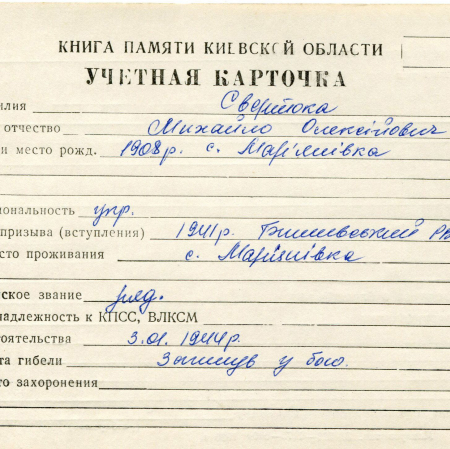 КНИГА ПАМЯТИ КИЕВСКОЙ ОБЛАСТИ
УЧЕТНАЯ КАРТОЧКА
илия Свертока
отчество Михайло Олексійович
и место рожд. 1908 р. с. Мар'янівка
иональность укр.
призыва (вступления) 1941р. Бишівський РВ
сто проживания с. Мар'янівка
ское звание ряд.
надлежность к КПСС, ВЛКСМ
тоятельства 3.01.1944р.
та гибели Загинув у бою.
то захоронения